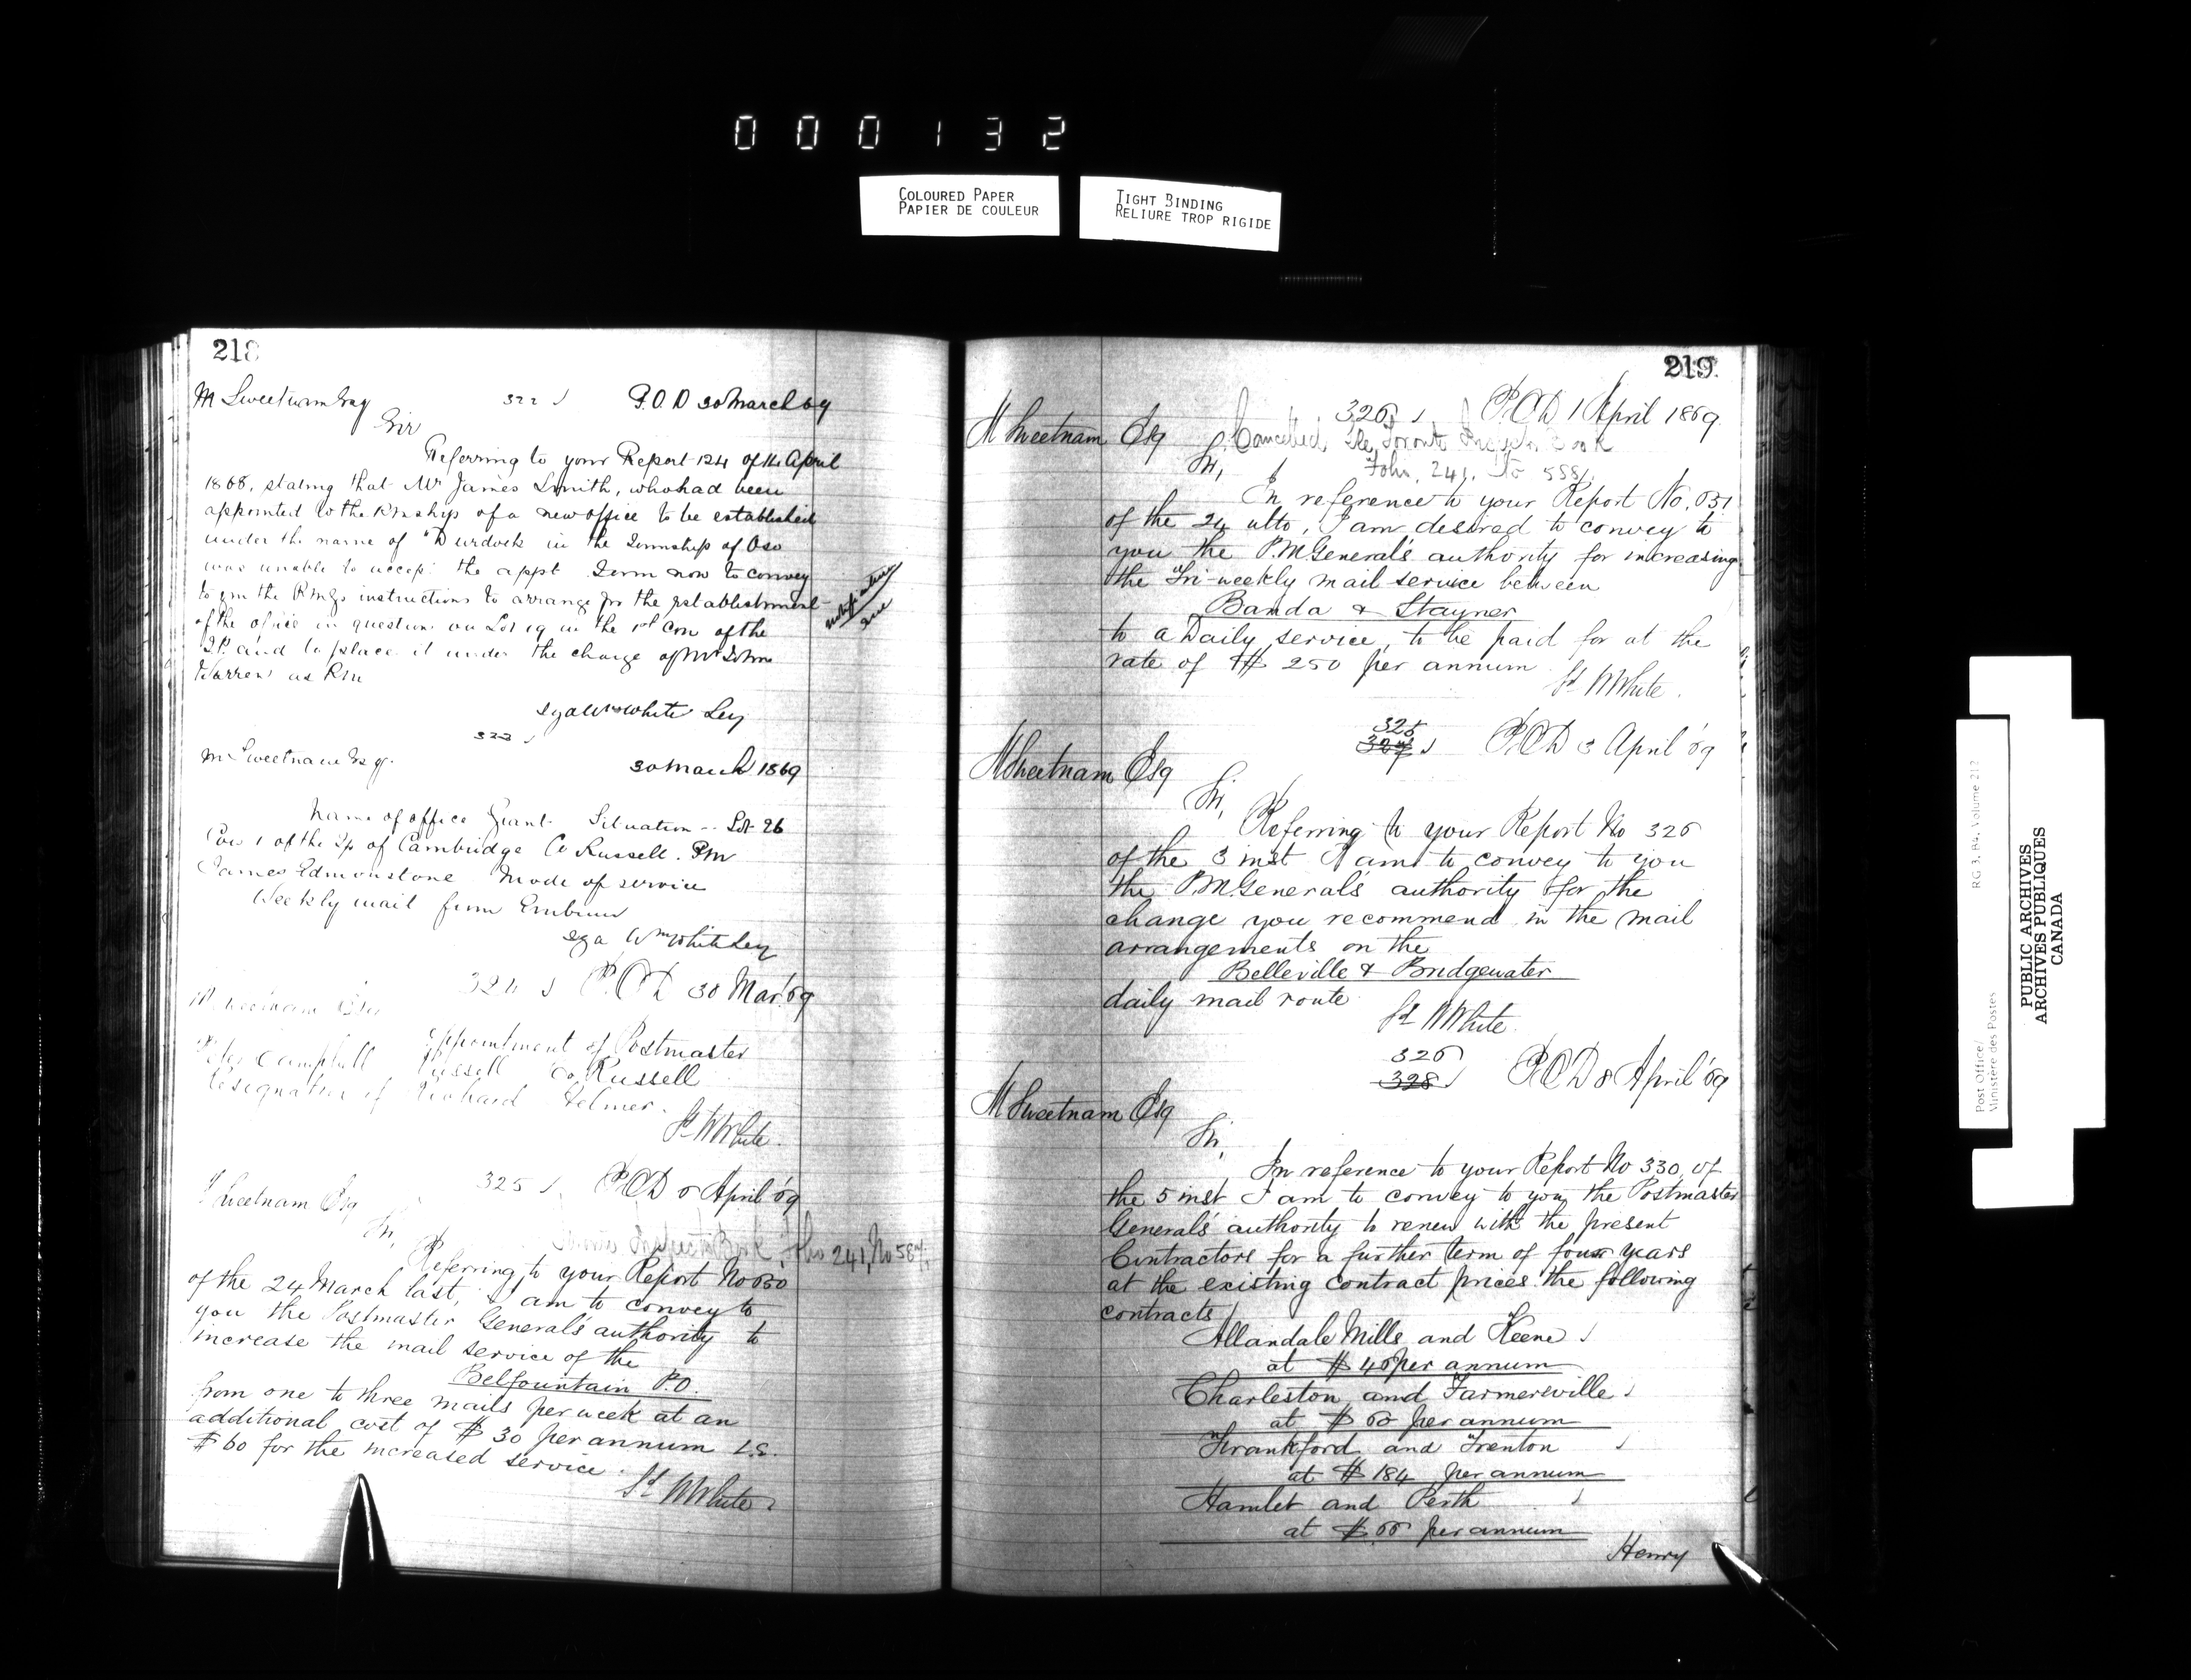 000132
COLOURED PAPER
PAPIER DE COULEUR
TIGHT BINDING
RELIURE TROP RIGIDE
218
M Sweetnam Esq 322 P.O.D 30 March 69
Sir
Referring to your Report 124 of 14 April
1868, stating that Mr James Smith, who had been
appointed to the Pmship of a new office to be established
under the name of "Burdock in the Township of Oso
was unable to accept the appt I am now to convey
to you the PmGs instructions to arrange for the establishment
of the office in question on Lot 19 in the 1st Con of the
TP. and to place it under the charge of Mr John
Warren as Pm
Sgd Wm White Secy
323
M Sweetnam Esq. 30 March 1869
Name of office Grant Situation -- Lot 26
Con 1 of the Tp of Cambridge Co Russell. Pm
James Edmonstone Mode of service
Weekly mail from Embrun
Sgd Wm White Secy
324 P.O.D 30 Mar. 69
M. Sweetnam Esq
Appointment of Postmaster
Peter Campbell Russell Co. Russell
Resignation of Richard Helmer.
Sd W White.
325 P.O.D 6 April '69
M Sweetnam Esq
Sir,
Inspector Book, Folio 241, No 587.
Referring to your Report No 630
of the 24 March last, I am to convey to
you the Postmaster General's authority to
increase the mail service of the
Belfountain P.O.
from one to three mails per week at an
additional cost of $ 30 per annum i.e.
$ 60 for the increased service.
Sd W White
219
326 P.O.D 1 April 1869.
M Sweetnam Esq Cancelled, See Toronto Inspector Book
Sir, Folio. 241. No 558
In reference to your Report No. 631
of the 24 ulto, I am desired to convey to
you the P.M. General's authority for increasing
the Tri-weekly mail service between
Banda & Stayner
to a Daily service, to be paid for at the
rate of $ 250 per annum
Sd W White.
325
327 P.O.D 3 April '69
M Sweetnam Esq
Sir,
Referring to your Report No 326
of the 3 inst I am to convey to you
the P.M. General's authority for the
change you recommend in the mail
arrangements on the
Belleville & Bridgewater
daily mail route
Sd W White.
326
328 P.O.D 8 April '69
M Sweetnam Esq
Sir,
In reference to your Report No 330, of
the 5 inst I am to convey to you the Postmaster
General's authority to renew with the present
Contractors for a further term of four years
at the existing contract prices the following
contracts
Allandale Mills and Keene
at $ 46 per annum
Charleston and Farmersville
at $ 60 per annum
Frankford and Trenton
at $ 184 per annum
Hamlet and Perth
at $ 66 per annum
Henry
Post Office/
Ministère des Postes
RG 3, B4, Volume 212
PUBLIC ARCHIVES
ARCHIVES PUBLIQUES
CANADA